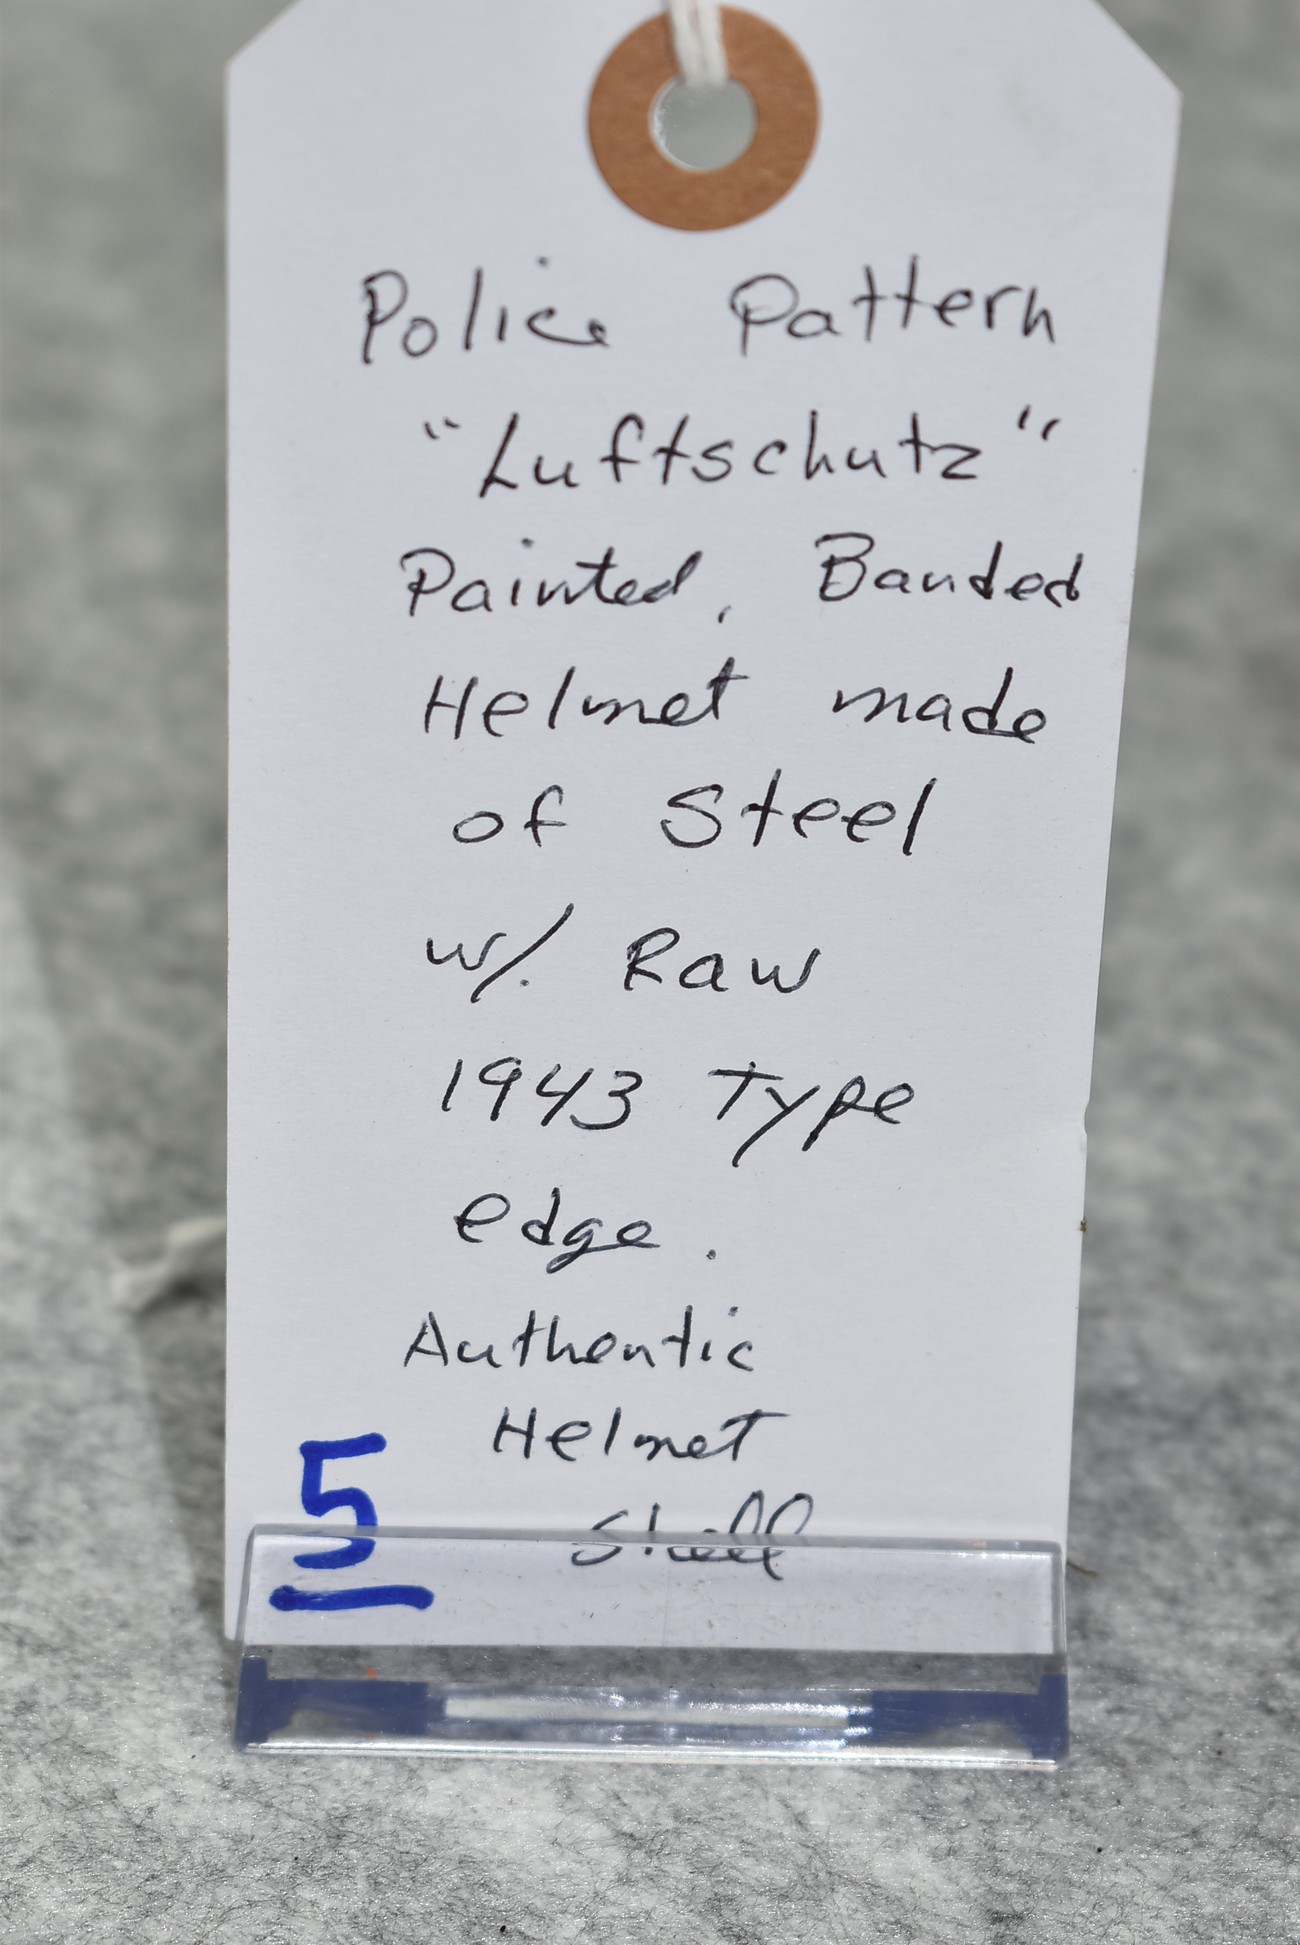 Police Pattern
"Luftschutz"
Painted, Banded
Helmet made
of Steel
w/. Raw
1943 Type
edge.
Authentic
Helmet
Shell
5